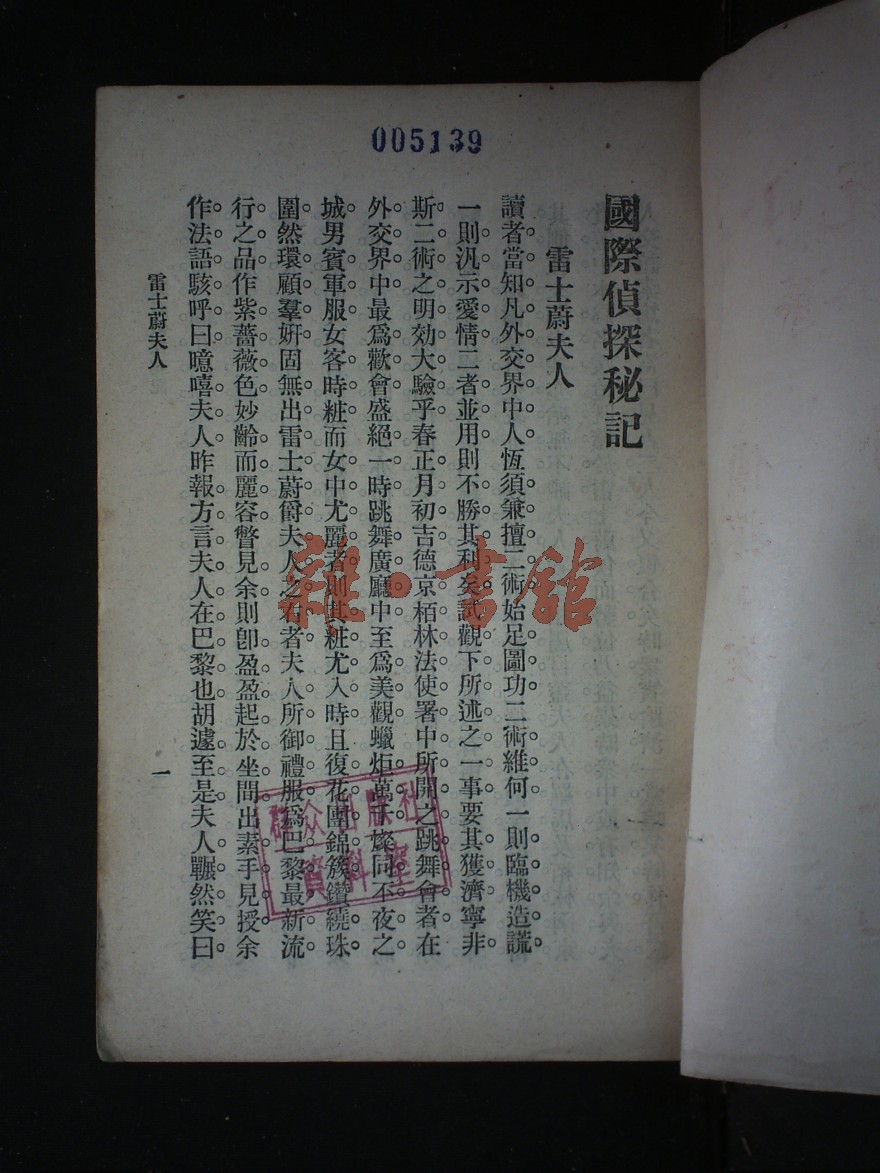 005139
國際偵探秘記
雷士蔚夫人
讀者當知凡外交界中人恆須兼擅二術始足圖功二術維何一則臨機造謊。
一則汎示愛情二者並用則不勝其利矣試觀下所述之一事要其獲濟寧非
斯二術之明効大驗乎春正月初吉德京栢林法使署中所開之跳舞會者在
外交界中最爲歡會盛絕一時跳舞廣廳中至爲美觀蠟炬萬千燦同不夜之
城男賓軍服女客時粧而女中尤麗者則其粧尤入時且復花團錦簇鑽繞珠
圍然環顧羣妍固無出雷士蔚爵夫人之右者夫人所御禮服爲巴黎最新流
行之品作紫薔薇色妙齡而麗容瞥見余則卽盈盈起於坐間出素手見授余
作法語駭呼曰噫嘻夫人昨報方言夫人在巴黎也胡遽至是夫人囅然笑曰
雷士蔚夫人
一
雜·書館
群众出版社
資料室